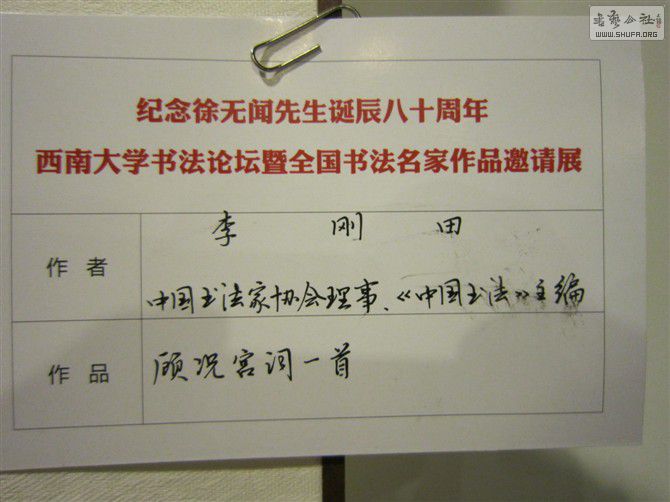 书艺公社
WWW.SHUFA.ORG
纪念徐无闻先生诞辰八十周年
西南大学书法论坛暨全国书法名家作品邀请展
作者
李刚田
中国书法家协会理事、《中国书法》主编
作品
顾况宫词一首